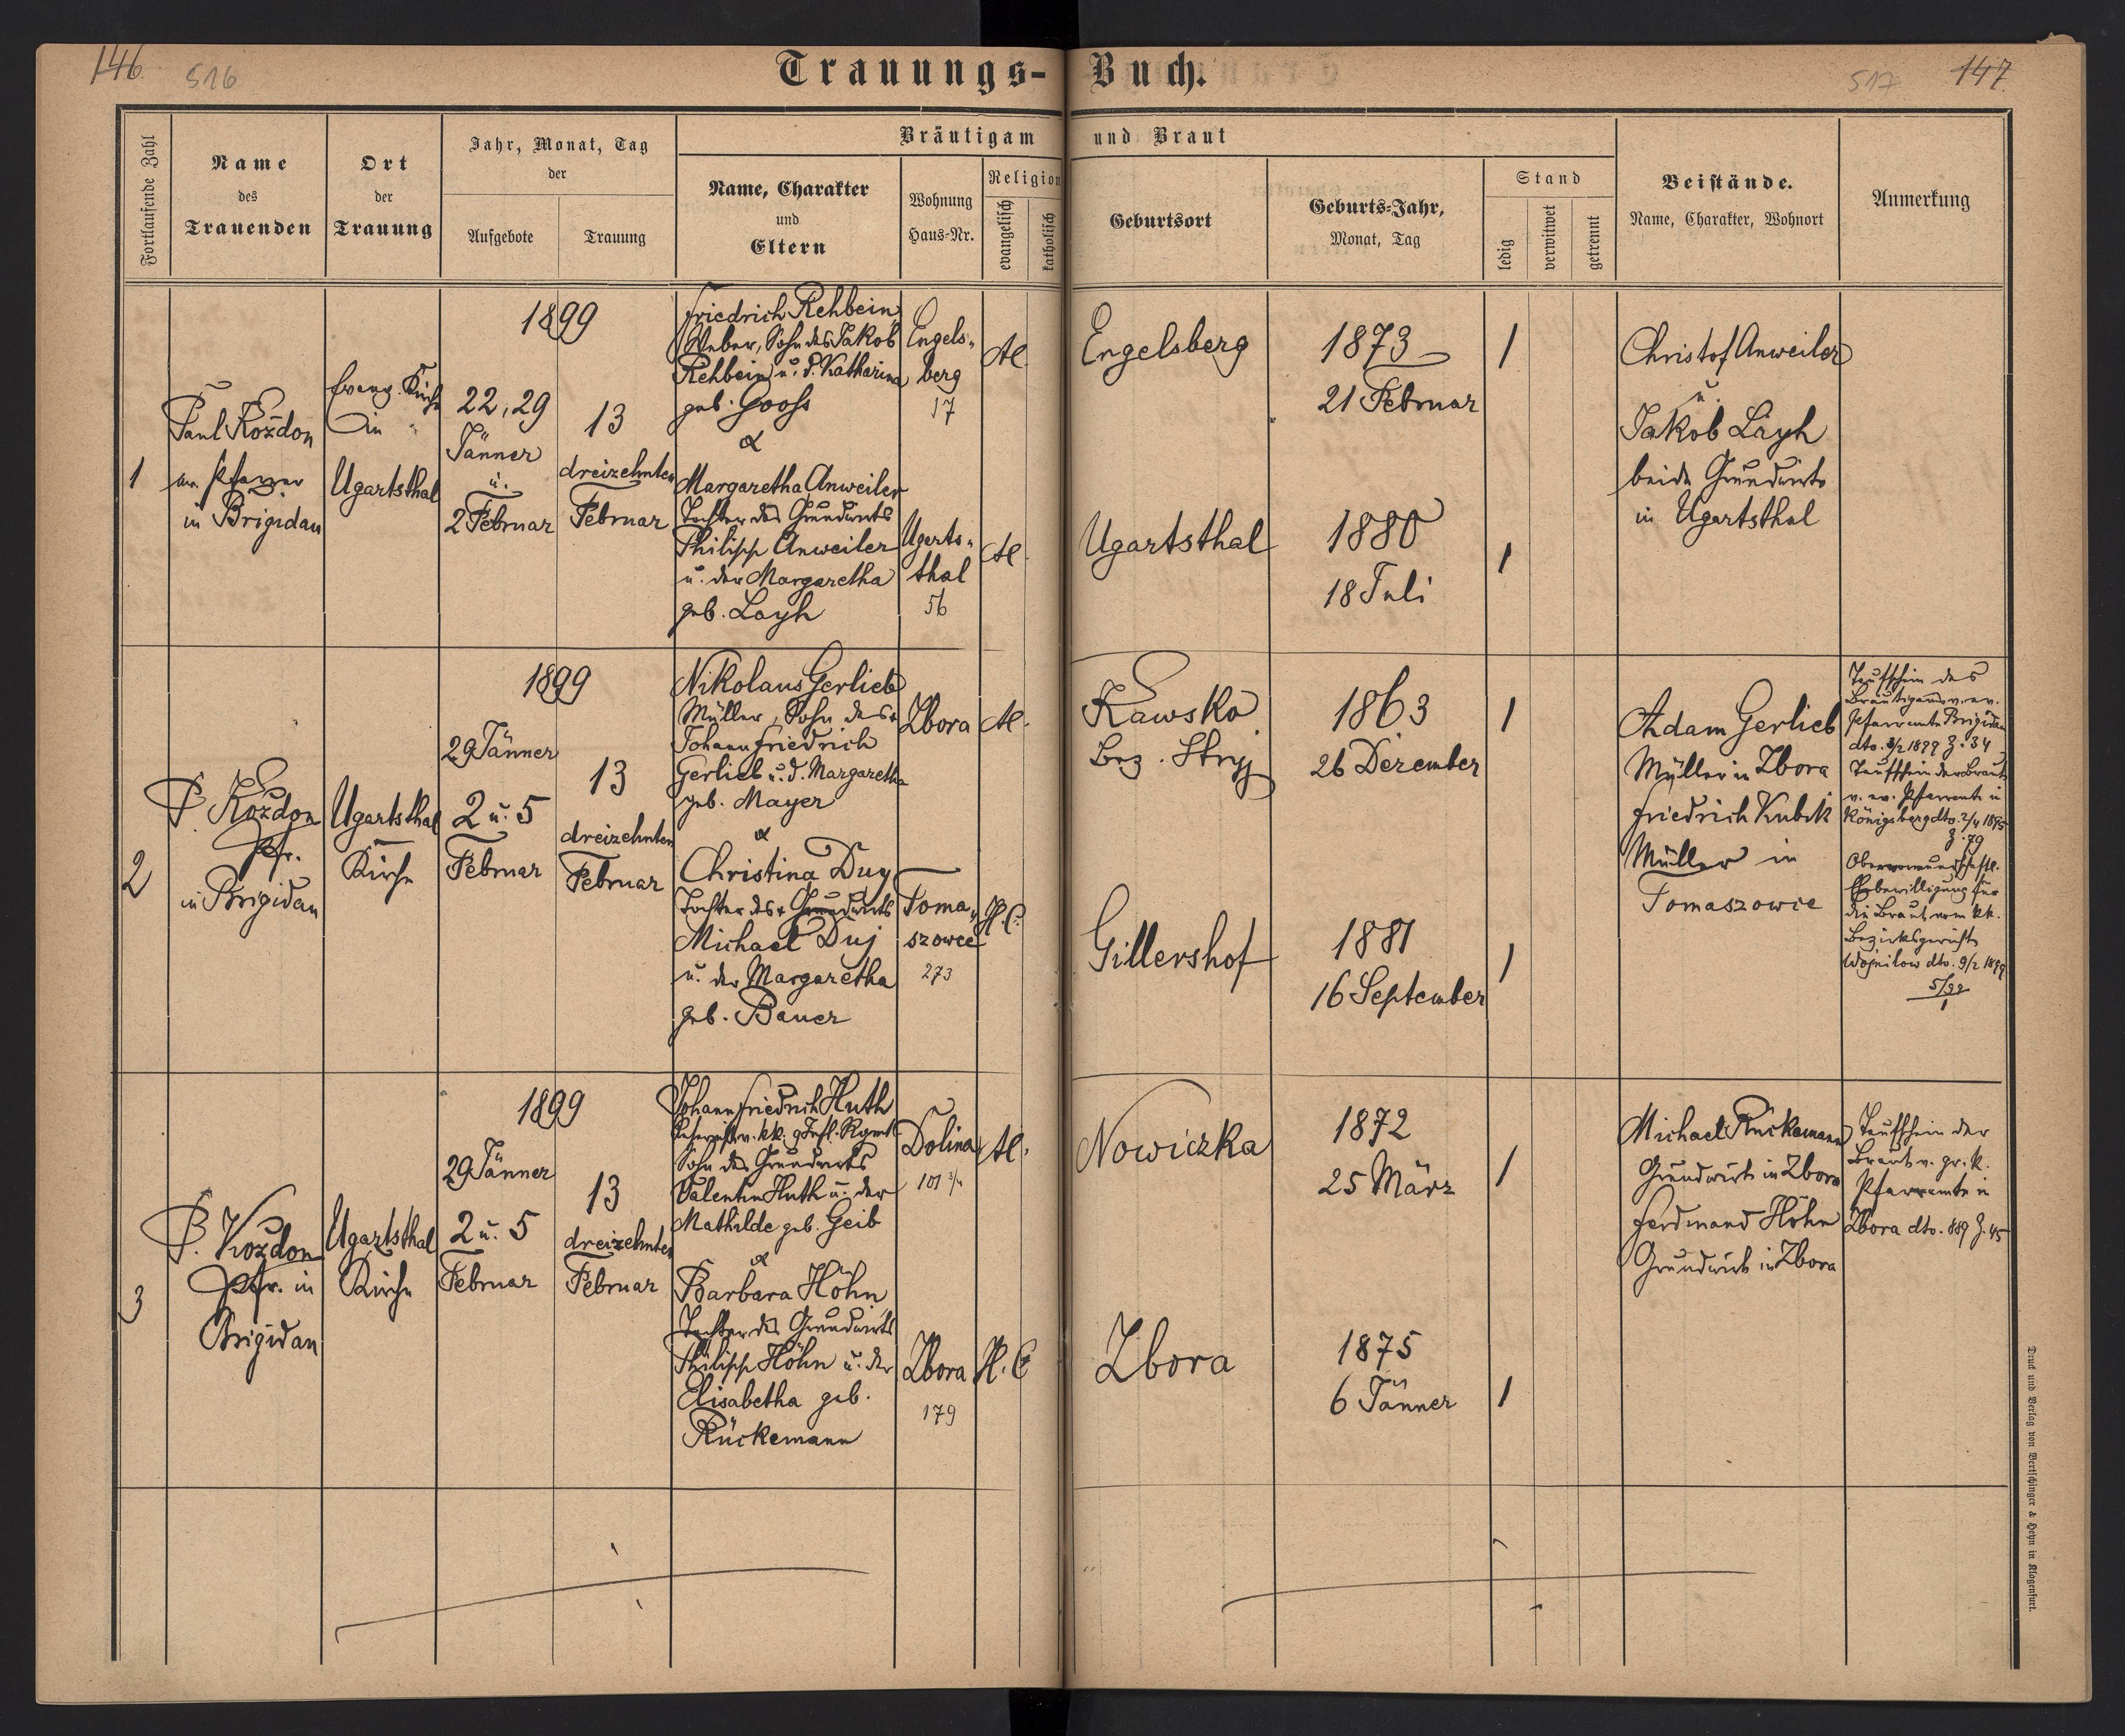 146
516
Trauungs-Buch.
517
147
Fortlaufende Zahl
Name
des
Trauenden
Ort
der
Trauung
Jahr, Monat, Tag
der
Aufgebote
Trauung
Bräutigam und Braut
Name, Charakter
und
Eltern
Wohnung
Haus-Nr.
Religion
evangelisch
katholisch
Geburtsort
Geburts-Jahr,
Monat, Tag
Stand
ledig
verwitwet
getrennt
Beistände.
Name, Charakter, Wohnort
Anmerkung
1
Paul Kozdon
Pfarrer
in Brigidau
Evang. Kirche
in
Ugartsthal
1899
22, 29
Jänner
u.
2 Februar
13
dreizehnten
Februar
Friedrich Rehbein
Weber, Sohn des Jakob
Rehbein u. d. Katharina
geb. Gooss
&
Margaretha Anweiler
Tochter des Grundwirts
Philipp Anweiler
u. der Margaretha
geb. Layh
Engels-
berg
17
Ugarts-
thal
56
A.
A.
Engelsberg
Ugartsthal
1873
21 Februar
1880
18 Juli
1
1
Christof Anweiler
u.
Jakob Layh
beide Grundwirte
in Ugartsthal
2
P. Kozdon
Pfr.
in Brigidau
Ugartsthal
Kirche
1899
29 Jänner
2 u. 5
Februar
13
dreizehnten
Februar
Nikolaus Gerlieb
Müller, Sohn des +
Johann Friedrich
Gerlieb u. d. Margaretha
geb. Mayer
&
Christina Duy
Tochter des + Grundwirts
Michael Duj
u. der Margaretha
geb. Bauer
Zbora
Toma-
szowce
273
A.
H. C.
Kawsko
Bez. Stryj
Gillershof
1863
26 Dezember
1881
16 September
1
1
Adam Gerlieb
Müller in Zbora
Friedrich Kubik
Müller in
Tomaszowce
Taufschein des
Bräutigams v. ev.
Pfarramte Brigidau
dto. 3/2 1899 Z. 34
Taufschein der Braut
v. ev. Pfarramte in
Königsberg dto. 2/4 1895
Z. 79
Obervormundschaftl.
Ehebewilligung für
die Braut vom kk.
Bezirksgerichte
Wojnilow dto. 9/2 1899
5/99
1
3
P. Kozdon
Pfr. in
Brigidau
Ugartsthal
Kirche
1899
29 Jänner
2 u. 5
Februar
13
dreizehnten
Februar
Johann Friedrich Huth
Reservist v. kk. 9 Inft. Rgmt.
Sohn des Grundwirts
Valentin Huth u. der
Mathilde geb. Geib
&
Barbara Höhn
Tochter des Grundwirts
Philipp Höhn u. der
Elisabetha geb.
Rückemann
Dolina
101
Zbora
179
A.
H. C
Nowiczka
Zbora
1872
25 März
1875
6 Jänner
1
1
Michael Rückemann
Grundwirt in Zbora
Ferdinand Höhn
Grundwirt in Zbora
Taufschein der
Braut v. gr. k.
Pfarramte in
Zbora dto. 889 Z. 45
Druck und Verlag von Bertschinger & Heyn in Klagenfurt.